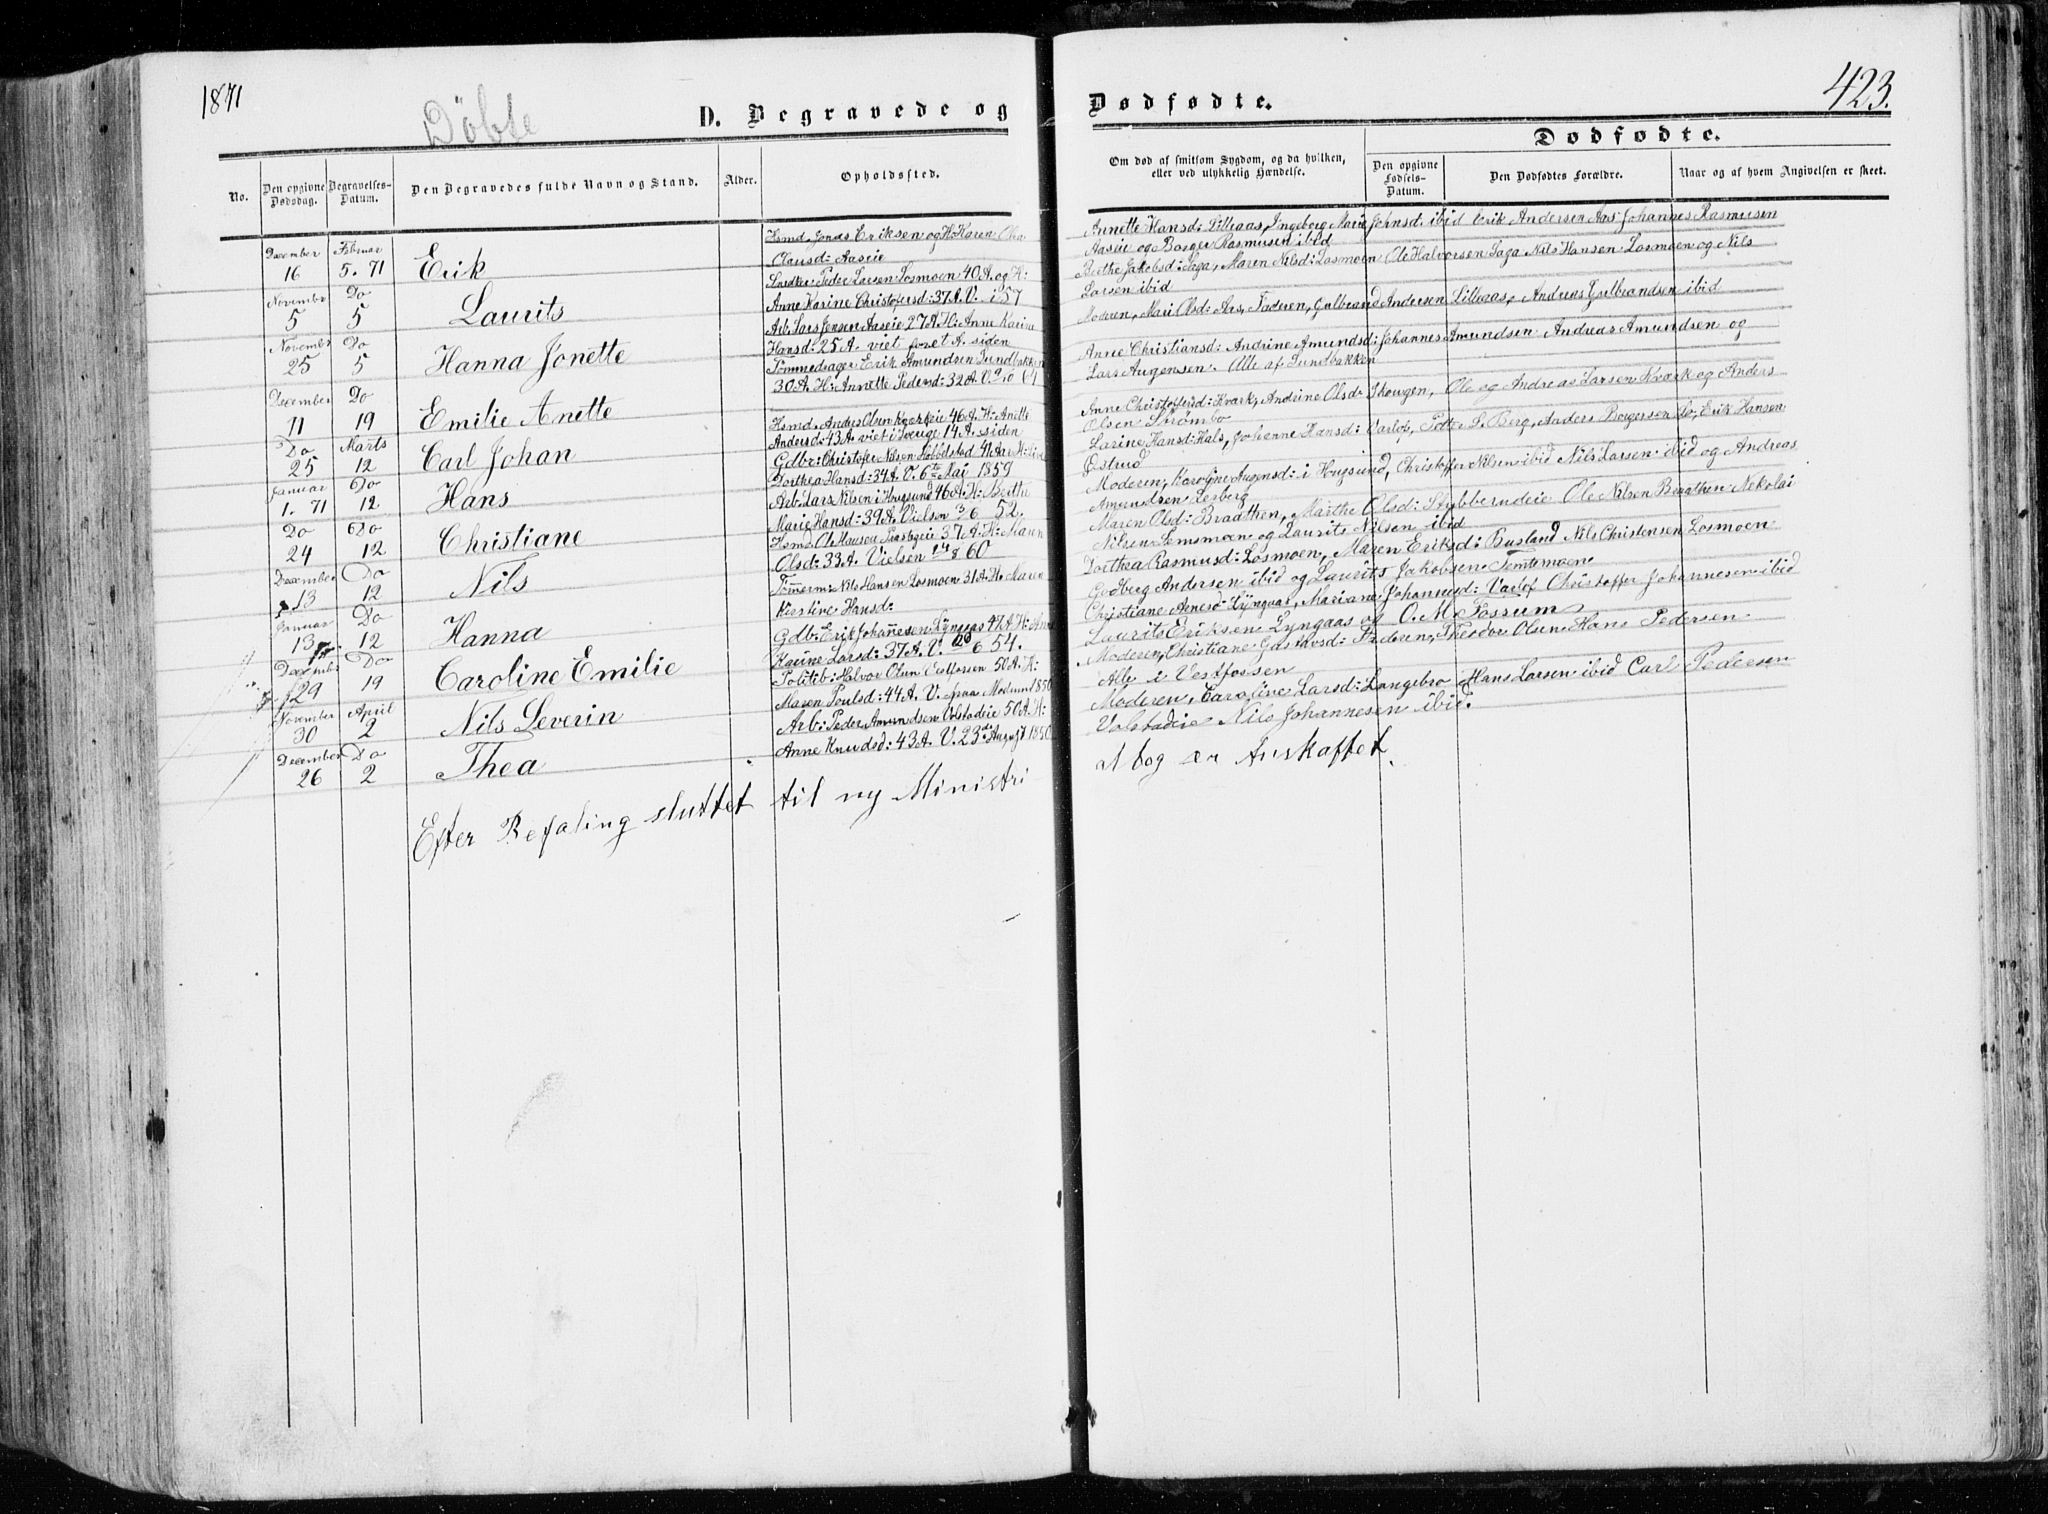 1871
423.
Döbte
D. Begravede og
Dødfødte.
Dødfødte.
No.
Den opgivne Dødsdag.
Begravelses-Datum.
Den Begravedes fulde Navn og Stand.
Alder.
Opholdssted.
Om død af smitsom Sygdom, og da hvilken,
eller ved ulykkelig Hændelse.
Den opgivne Fødsels-Datum.
Den Dødfødtes Forældre.
Naar og af hvem Angivelsen er skeet.
December 16 Februar 5. 71 Erik
Hsmd Jonas Eriksen og H: Karen
Olausd: Aaseie
Annette Hansd: Lilleaas, Ingeborg Marie Johnsd: ibid Erik Andersen Aas Johannes Rasmusen
Aaseie og Borger Rasmusen ibid
November 5 Do 5 Laurits
Peder Larsen Losmoen 40 A. og H:
Anne Karine Christofersd: 37 A. V. i 57
Berthe Jakobsd: Saga, Maren Nilsd: Losmoen Ole Halvorsen Saga Nils Hansen Losmoen og Nils
Larsen ibid
November 25 Do 5 Hanna Jonette
Arb. Lars Jensen Aaseie 27 A H: Anne Karine
Hansd: 25 A. viet foret A. siden
Moderen, Mari Olsd: Aas, Faderen, Gulbrand Andersen Lilleaas, Andreas Gulbrandsen ibid
December 11 Do 19 Emilie Anette
Tømmedrager Erik Amundsen Sundbakken
30 A. H: Annette Pedersd: 32 A. V.
Anne Christiansd: Andrine Amundsd: Johannes Amundsen Andreas Amundsen og
Lars Augensen. Alle af Sundbakken
Do 25 Marts 12 Carl Johan
Hsmd. Anders Olsen Kværkeie 46 A. H: Anette
Andersd: 43 A. viet i Sverige 14 A. siden
Anne Christoffersd: Kværk, Andrine Olsd: Skougen, Ole og Andreas Larsen Kværk og Anders
Olsen Strømbo
Januar 1. 71 Do 12 Hans
Gdbr: Christofer Nilsen Hobbelstad 41 Aar H:
Dorthea Hansd: 34 A. V. 6te Mai 1859
Larine Hansd: Hals, Johanne Hansd: Varlof, Petter S. Berg, Anders Borgersen Do, Erik Hansen
Østrud
Do 24 Do 12 Christiane
Arb. Lars Nilsen i Hougsund 46 A. H: Berthe
Marie Hansd: 39 A. Vielsen 3/6 52.
Moderen, Karoline Augensd: i Hougsund, Christoffer Nilsen ibid Nils Larsen ibid og Andreas
Amundsen Lerberg
December 13 Do 12 Nils
Hsmd. Ole Hansen 37 A. H: Maren
Olsd: 33 A. Vielsen 60
Maren Olsd: Braathen, Marthe Olsd: Stybberudeie Ole Nilsen Braathen Nekolai
Nilsen Temsmoen og Laurits Nilsen ibid
Januar 13 Do 12 Hanna
Tømmerm: Nils Hansen Losmoen 31 A. H: Maren
Kirstine Hansd:
Dorthea Rasmusd: Losmoen, Maren Eriksd: Busland Nils Christensen Losmoen
Gudberg Andersen ibid og Laurits Jakobsen Temtemoen
December 29 Do 19 Caroline Emilie
Gdb: Erik Johannesen Lyngaas 47 A. H: Anne
Karine Larsd: 37 A. V. 6 54.
Christiane Arnesd Lyngaas, Mariane Johannesd: Varlof Christoffer Johannesen ibid
Laurits Eriksen Lyngaas og O. M. Fossum
November 30 April 2 Nils Severin
Politib: Halvor Olsen Vestfossen 50 A. H:
Maren Poulsd: 44 A. V. paa Modum 1850
Moderen, Christiane Gustavsd: Faderen, Theodor Olsen Hans Pedersen
Alle i Vestfossen
December 26 Do 2 Thea
Arb: Peder Amundsen Volstadeie 50 A. H:
Anne Knudsd: 43 A. V. 23de August 1850
Moderen, Caroline Larsd: Langebro Hans Larsen ibid Carl Pedersen
Volstadeie Nils Johannesen ibid.
Efter Befaling sluttet til ny Ministri
al bog er Anskaffet.